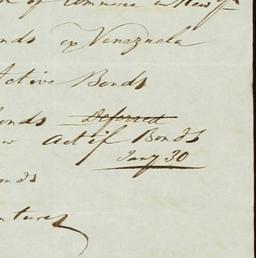 of Commerce in New Y
nds of Venezuela
Active Bonds
onds Deferred
w Actif Bonds
Jany 30
onds
ntures